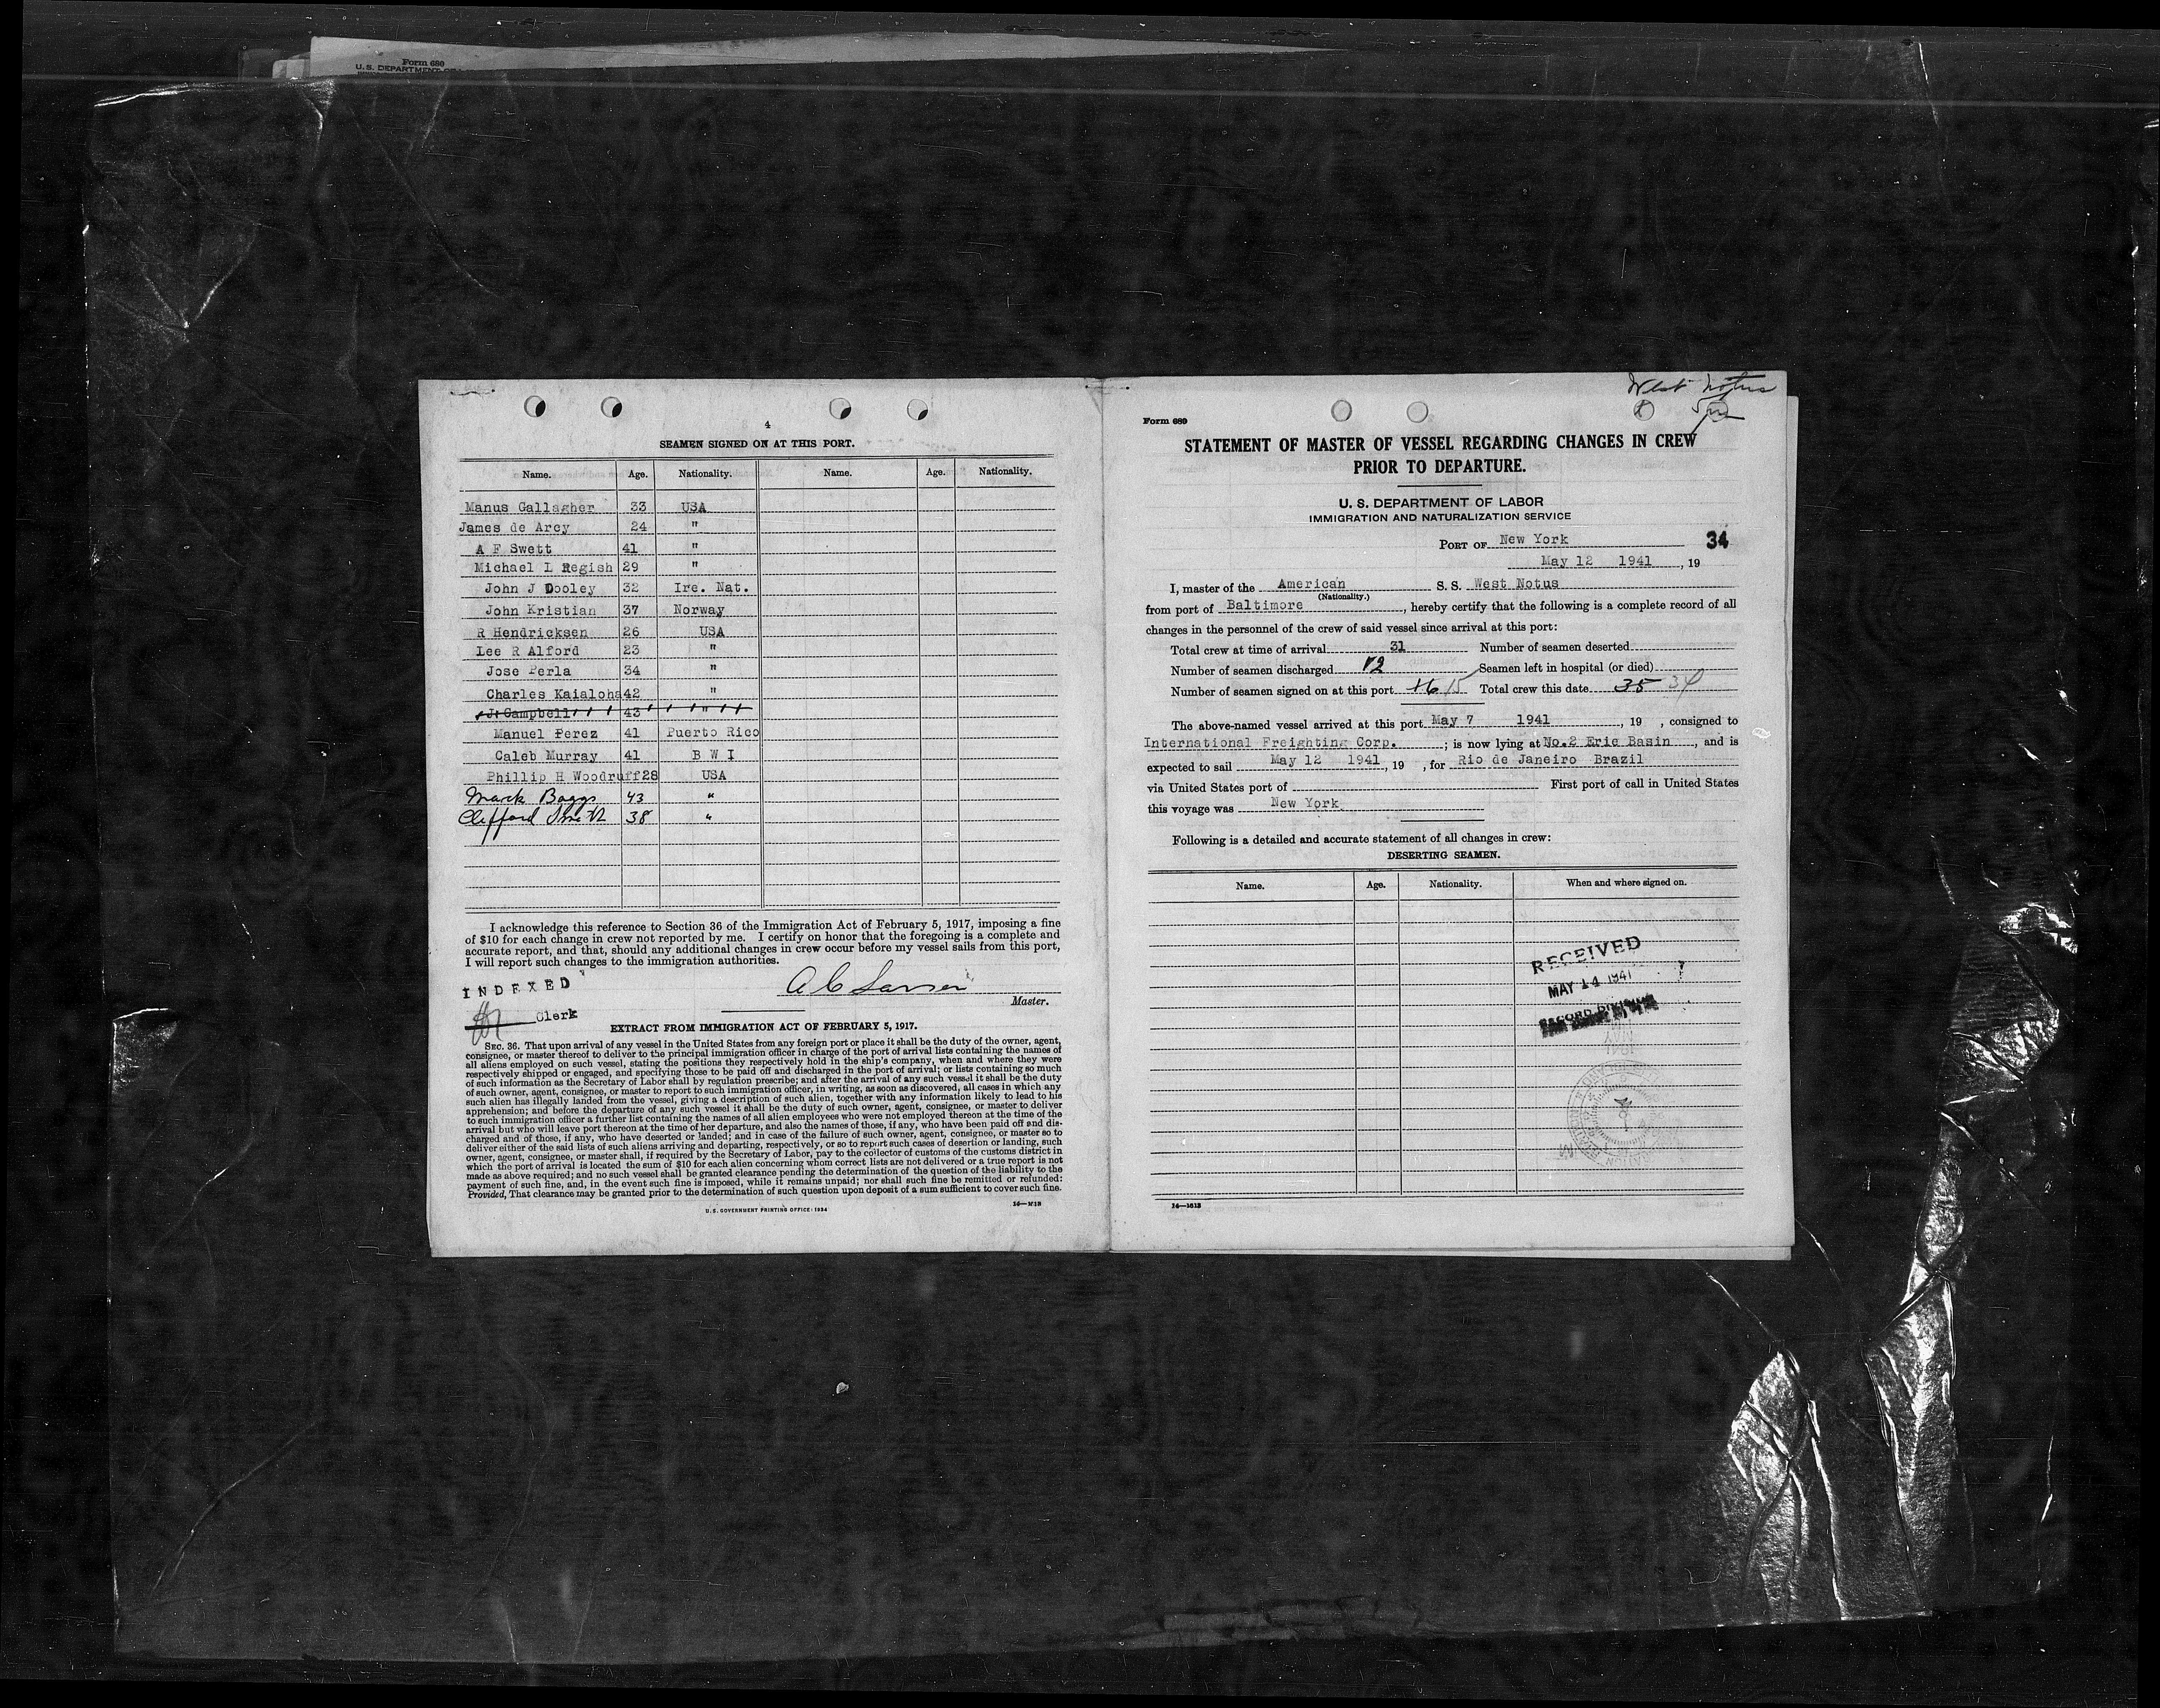 Form 680
U. S. DEPARTMENT OF
4
SEAMEN SIGNED ON AT THIS PORT.
Name. Age. Nationality. Name. Age. Nationality.
Manus Gallagher 33 USA
James de Arcy 24 "
A F Swett 41 "
Michael L Regish 29 "
John J Dooley 32 Ire. Nat.
John Kristian 37 Norway
R Hendricksen 26 USA
Lee R Alford 23 "
Jose Perla 34 "
Charles Kaialoha 42 "
J Campbell 43 "
Manuel Perez 41 Puerto Rico
Caleb Murray 41 B W I
Phillip H Woodruff 28 USA
Mark Boggs 43 "
Clifford Smith 38 "
I acknowledge this reference to Section 36 of the Immigration Act of February 5, 1917, imposing a fine
of $10 for each change in crew not reported by me. I certify on honor that the foregoing is a complete and
accurate report, and that, should any additional changes in crew occur before my vessel sails from this port,
I will report such changes to the immigration authorities.
INDEXED
A C Larsen
Master.
Clerk
EXTRACT FROM IMMIGRATION ACT OF FEBRUARY 5, 1917.
SEC. 36. That upon arrival of any vessel in the United States from any foreign port or place it shall be the duty of the owner, agent,
consignee, or master thereof to deliver to the principal immigration officer in charge of the port of arrival lists containing the names of
all aliens employed on such vessel, stating the positions they respectively hold in the ship's company, when and where they were
respectively shipped or engaged, and specifying those to be paid off and discharged in the port of arrival; or lists containing so much
of such information as the Secretary of Labor shall by regulation prescribe; and after the arrival of any such vessel it shall be the duty
of such owner, agent, consignee, or master to report to such immigration officer, in writing, as soon as discovered, all cases in which any
such alien has illegally landed from the vessel, giving a description of such alien, together with any information likely to lead to his
apprehension; and before the departure of any such vessel it shall be the duty of such owner, agent, consignee, or master to deliver
to such immigration officer a further list containing the names of all alien employees who were not employed thereon at the time of the
arrival but who will leave port thereon at the time of her departure, and also the names of those, if any, who have been paid off and dis-
charged and of those, if any, who have deserted or landed; and in case of the failure of such owner, agent, consignee, or master so to
deliver either of the said lists of such aliens arriving and departing, respectively, or so to report such cases of desertion or landing, such
owner, agent, consignee, or master shall, if required by the Secretary of Labor, pay to the collector of customs of the customs district in
which the port of arrival is located the sum of $10 for each alien concerning whom correct lists are not delivered or a true report is not
made as above required; and no such vessel shall be granted clearance pending the determination of the question of the liability to the
payment of such fine, and, in the event such fine is imposed, while it remains unpaid; nor shall such fine be remitted or refunded:
Provided, That clearance may be granted prior to the determination of such question upon deposit of a sum sufficient to cover such fine.
U. S. GOVERNMENT PRINTING OFFICE: 1934
West Notus
Form 680
STATEMENT OF MASTER OF VESSEL REGARDING CHANGES IN CREW
PRIOR TO DEPARTURE.
U. S. DEPARTMENT OF LABOR
IMMIGRATION AND NATURALIZATION SERVICE
PORT OF New York 34
May 12 1941, 19
I, master of the American S. S. West Notus
(Nationality.)
from port of Baltimore, hereby certify that the following is a complete record of all
changes in the personnel of the crew of said vessel since arrival at this port:
Total crew at time of arrival 31 Number of seamen deserted
Number of seamen discharged 12 Seamen left in hospital (or died)
Number of seamen signed on at this port 16 15 Total crew this date 35 34
The above-named vessel arrived at this port May 7 1941, 19 , consigned to
International Freighting Corp. ; is now lying at No.2 Eric Basin, and is
expected to sail May 12 1941, 19 , for Rio de Janeiro Brazil
via United States port of First port of call in United States
this voyage was New York
Following is a detailed and accurate statement of all changes in crew:
DESERTING SEAMEN.
Name. Age. Nationality. When and where signed on.
RECEIVED
MAY 14 1941
RECORD DIVISION